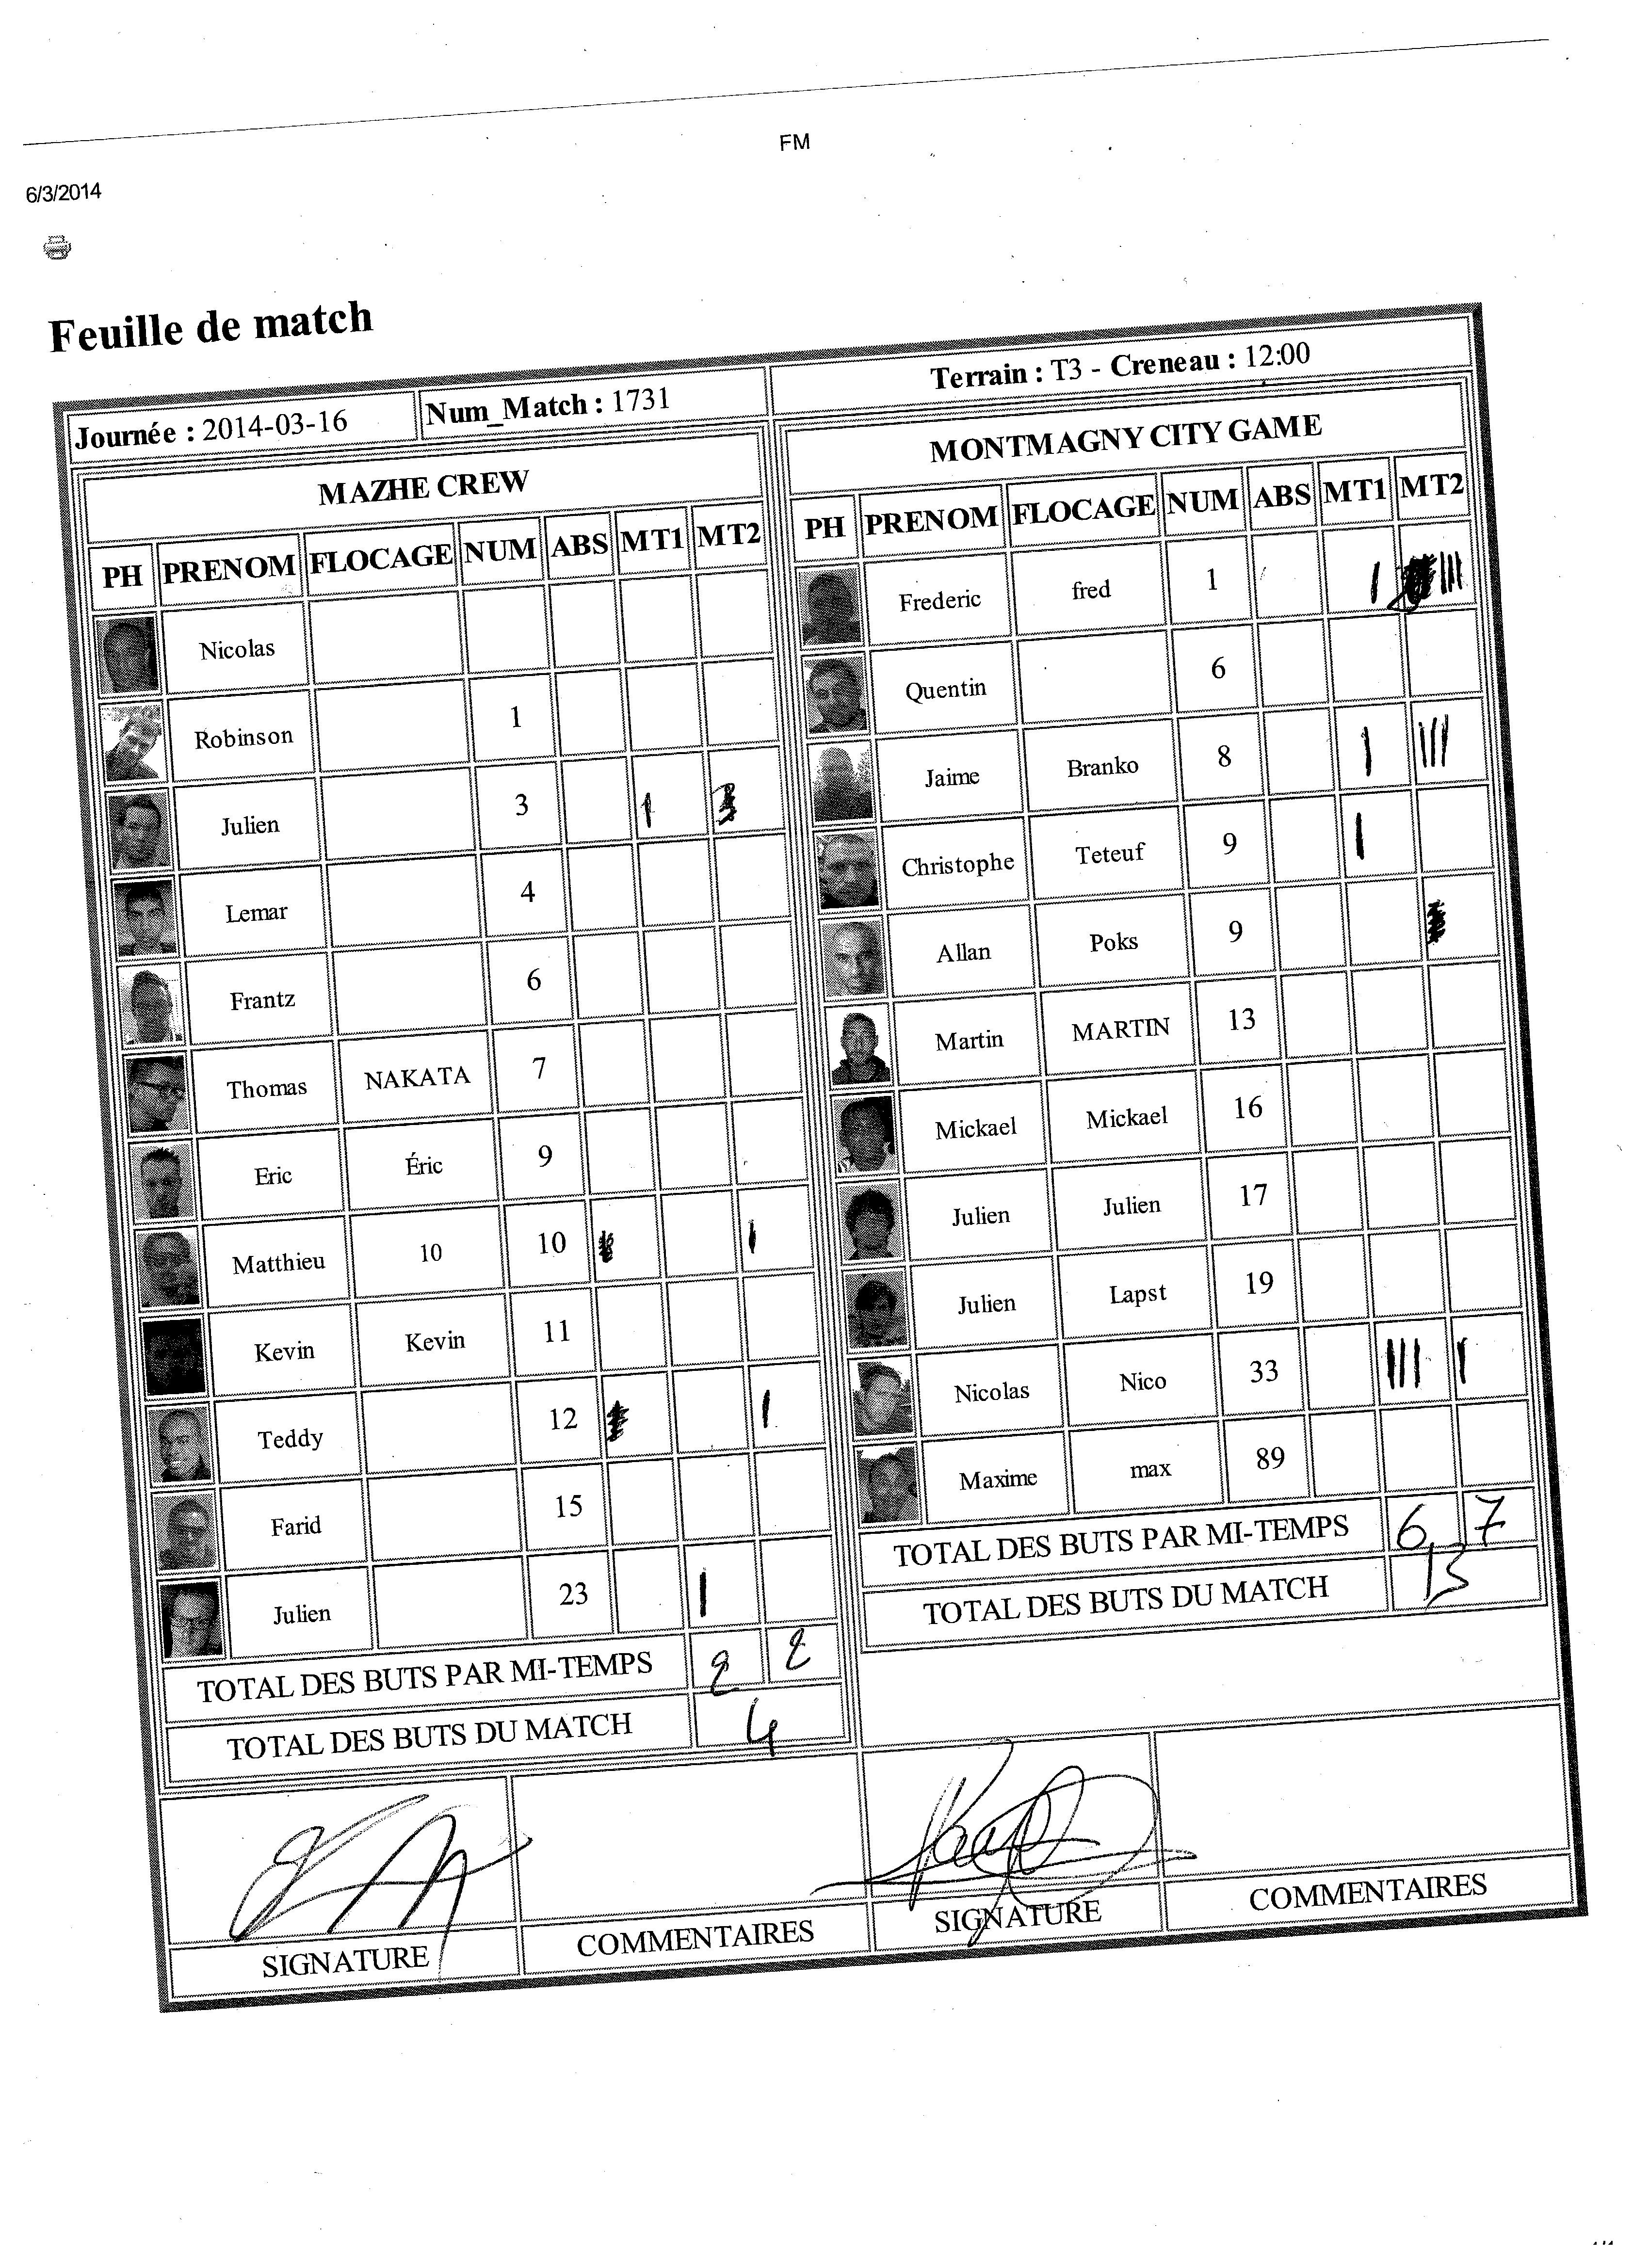 FM
6/3/2014
Feuille de match
Journée : 2014-03-16 Num_Match : 1731 Terrain : T3 - Creneau : 12:00
MAZHE CREW
PH PRENOM FLOCAGE NUM ABS MT1 MT2
Nicolas
Robinson 1
Julien 3 1
Lemar 4
Frantz 6
Thomas NAKATA 7
Eric Éric 9
Matthieu 10 10 I
Kevin Kevin 11
Teddy 12 I
Farid 15
Julien 23 I
TOTAL DES BUTS PAR MI-TEMPS 2 2
TOTAL DES BUTS DU MATCH 4
MONTMAGNY CITY GAME
PH PRENOM FLOCAGE NUM ABS MT1 MT2
Frederic fred 1 I III
Quentin 6
Jaime Branko 8 I III
Christophe Teteuf 9 I
Allan Poks 9
Martin MARTIN 13
Mickael Mickael 16
Julien Julien 17
Julien Lapst 19
Nicolas Nico 33 III I
Maxime max 89
TOTAL DES BUTS PAR MI-TEMPS 6 7
TOTAL DES BUTS DU MATCH 13
SIGNATURE COMMENTAIRES SIGNATURE COMMENTAIRES